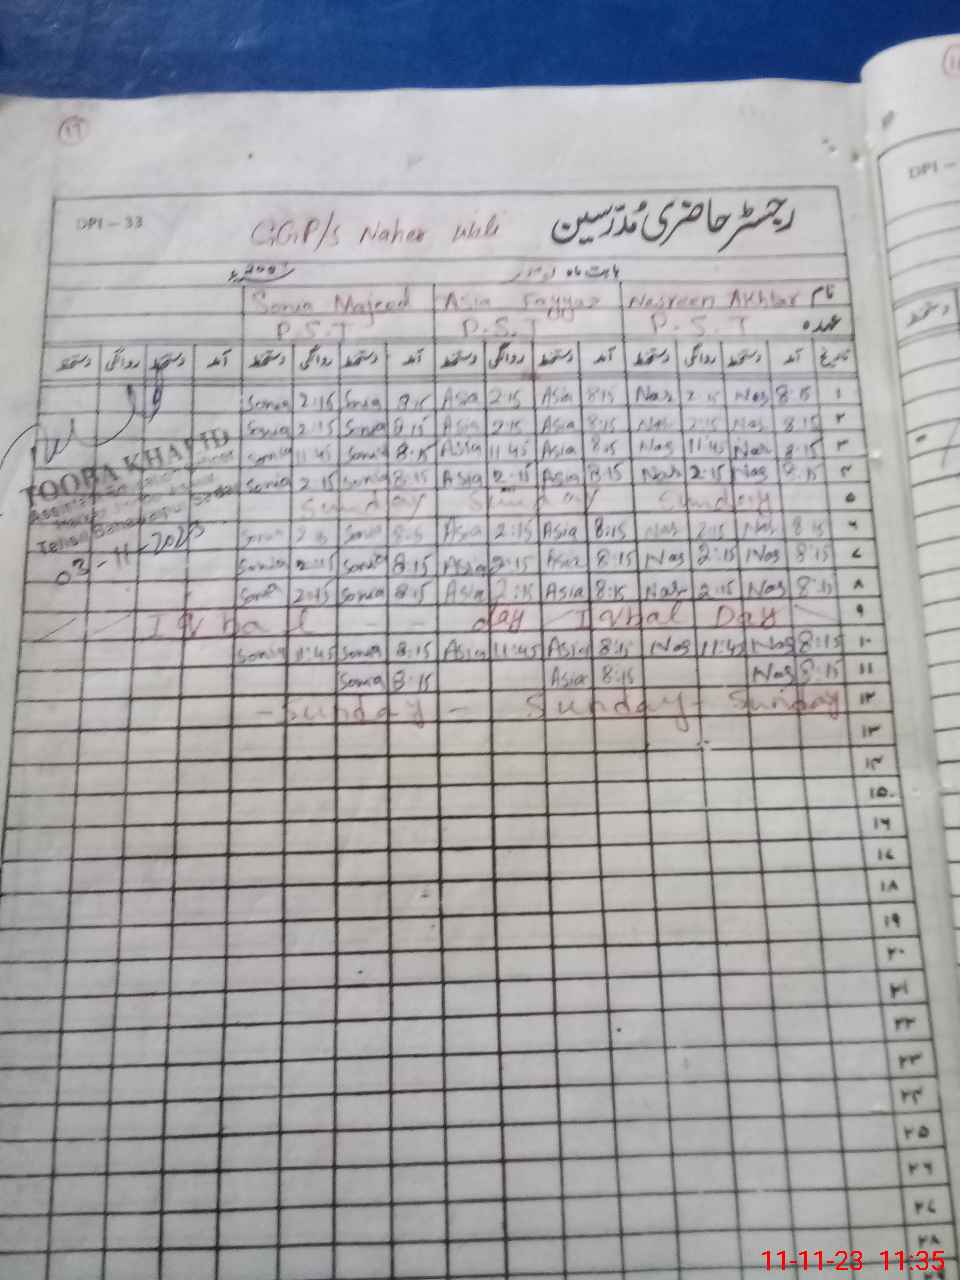 DPI - 33
G.G.P/S Naher رجسٹر حاضری مُدرّسین
بابت ماہ
Sonia Majeed Asia Fayyaz Nasreen Akhtar نام
P.S.T P.S.T P.S.T عہدہ
دستخط روانگی دستخط آمد دستخط روانگی دستخط آمد دستخط روانگی دستخط آمد دستخط روانگی دستخط آمد تاریخ
Sonia 2:15 Sonia 8:15 Asia 2:15 Asia 8:15 Nas 2:15 Nas 8:15 ۱
Sonia 2:15 Sonia 8:15 Asia 2:15 Asia 8:15 Nas 2:15 Nas 8:15 ۲
Sonia 11:45 Sonia 8:15 Asia 11:45 Asia 8:15 Nas 11:45 Nas 8:15 ۳
TOOBA KHALID
Sonia 2:15 Sonia 8:15 Asia 2:15 Asia 8:15 Nas 2:15 Nas 8:15 ۴
Sunday Sunday Sunday ۵
Tehsil Bahawalpur Sadar
03-11-2023
Sonia 2:15 Sonia 8:15 Asia 2:15 Asia 8:15 Nas 2:15 Nas 8:15 ۶
Sonia 2:15 Sonia 8:15 Asia 2:15 Asia 8:15 Nas 2:15 Nas 8:15 ۷
Sonia 2:15 Sonia 8:15 Asia 2:15 Asia 8:15 Nas 2:15 Nas 8:15 ۸
Iqbal - - day Iqbal Day ۹
Sonia 11:45 Sonia 8:15 Asia 11:45 Asia 8:15 Nas 11:45 Nas 8:15 ۱۰
Sonia 8:15 Asia 8:15 Nas 8:15 ۱۱
- Sunday - Sunday - Sunday ۱۲
۱۳
۱۴
۱۵
۱۶
۱۷
۱۸
۱۹
۲۰
۲۱
۲۲
۲۳
۲۴
۲۵
۲۶
۲۷
۲۸
DPI -
دستخط
11-11-23 11:35